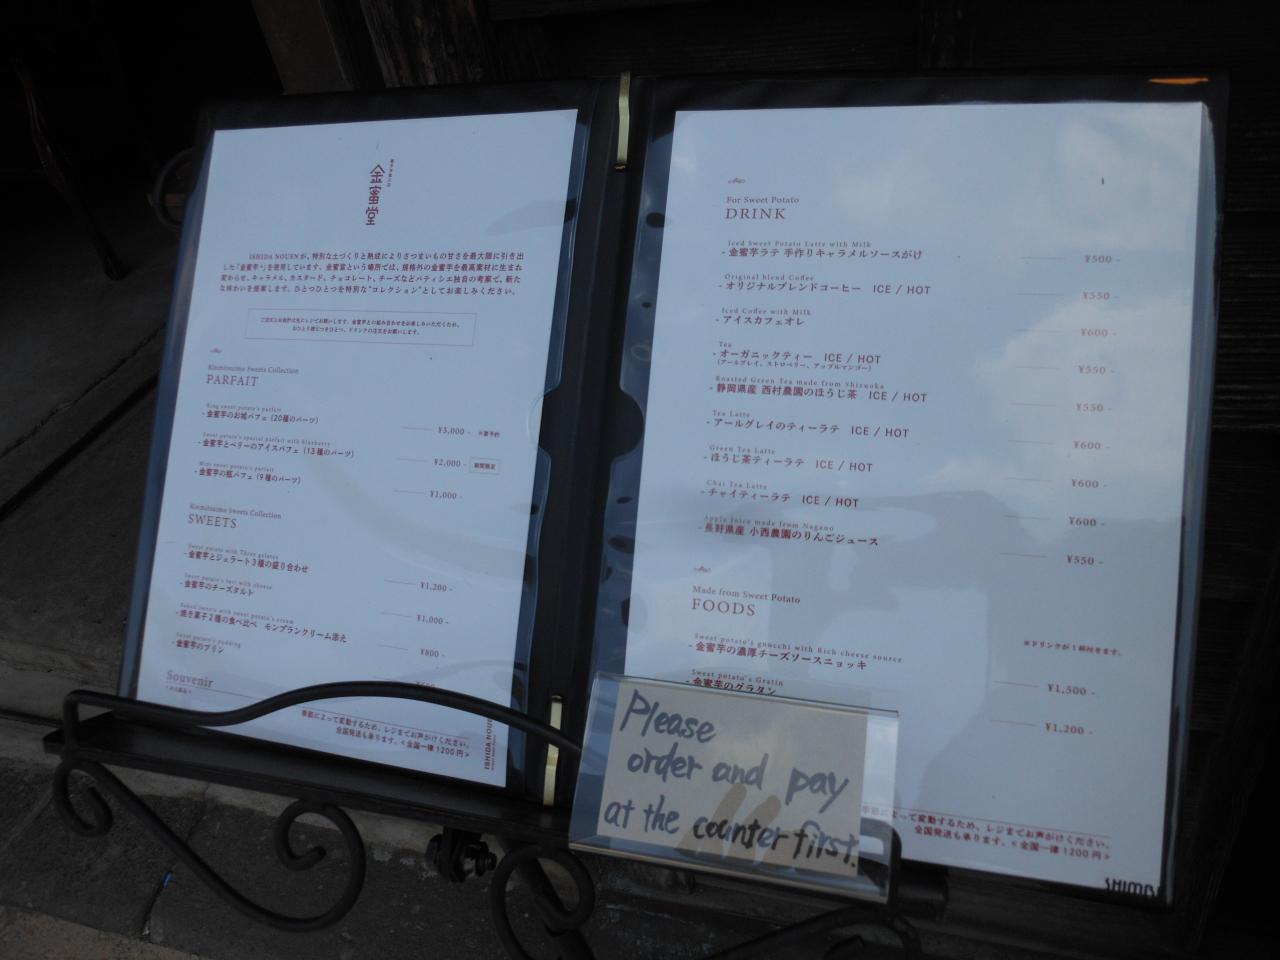 金蜜堂
ISHIDA NOUENが、特別な土づくりと熟成によりさつまいもの甘さを最大限に引き出
した「金蜜芋®」を使用しています。金蜜堂という場所では、規格外の金蜜芋を最高素材に生まれ
変わらせ、キャラメル、カスタード、チョコレート、チーズなどパティシエ独自の考案で、新た
な味わいを提案します。ひとつひとつを特別な"コレクション"としてお楽しみください。
ご注文とお会計は先にレジでお願いします。金蜜芋との組み合わせをお楽しみいただくため、
おひとり様につきひとつ、ドリンクの注文をお願いします。
Kinmitsuimo Sweets Collection
PARFAIT
King sweet potato's parfait
- 金蜜芋のお城パフェ (20種のパーツ) ¥3,000 - ※要予約
Sweet potato's special parfait with blueberry
- 金蜜芋とベリーのアイスパフェ (13種のパーツ) ¥2,000 - 期間限定
Mini sweet potato's parfait
- 金蜜芋の瓶パフェ (9種のパーツ) ¥1,000 -
Kinmitsuimo Sweets Collection
SWEETS
Sweet potato with Three gelatos
- 金蜜芋とジェラート3種の盛り合わせ ¥1,200 -
Sweet potato's tart with cheese
- 金蜜芋のチーズタルト ¥1,000 -
Baked Sweets with sweet potato's cream
- 焼き菓子2種の食べ比べ モンブランクリーム添え ¥800 -
Sweet potato's pudding
- 金蜜芋のプリン
Souvenir
季節によって変動するため、レジまでお声がけください。
全国発送も承ります。<全国一律 1200円>
ISHIDA NOUEN
For Sweet Potato
DRINK
Iced Sweet Potato Latte with Milk
- 金蜜芋ラテ 手作りキャラメルソースがけ ¥500 -
Original blend Coffee
- オリジナルブレンドコーヒー ICE / HOT ¥550 -
Iced Coffee with Milk
- アイスカフェオレ ¥600 -
Tea
- オーガニックティー ICE / HOT ¥550 -
(アールグレイ、ストロベリー、アップルマンゴー)
Roasted Green Tea made from Shizuoka
- 静岡県産 西村農園のほうじ茶 ICE / HOT ¥550 -
Tea Latte
- アールグレイのティーラテ ICE / HOT ¥600 -
Green Tea Latte
- ほうじ茶ティーラテ ICE / HOT ¥600 -
Chai Tea Latte
- チャイティーラテ ICE / HOT ¥600 -
Apple Juice made from Nagano
- 長野県産 小西農園のりんごジュース ¥550 -
Made from Sweet Potato
FOODS
※ドリンクが1杯付きます。
Sweet potato's gnocchi with Rich cheese source
- 金蜜芋の濃厚チーズソースニョッキ ¥1,500 -
Sweet potato's Gratin
- 金蜜芋のグラタン ¥1,200 -
季節によって変動するため、レジまでお声がけください。
全国発送も承ります。<全国一律 1200円>
Please
order and pay
at the counter first.